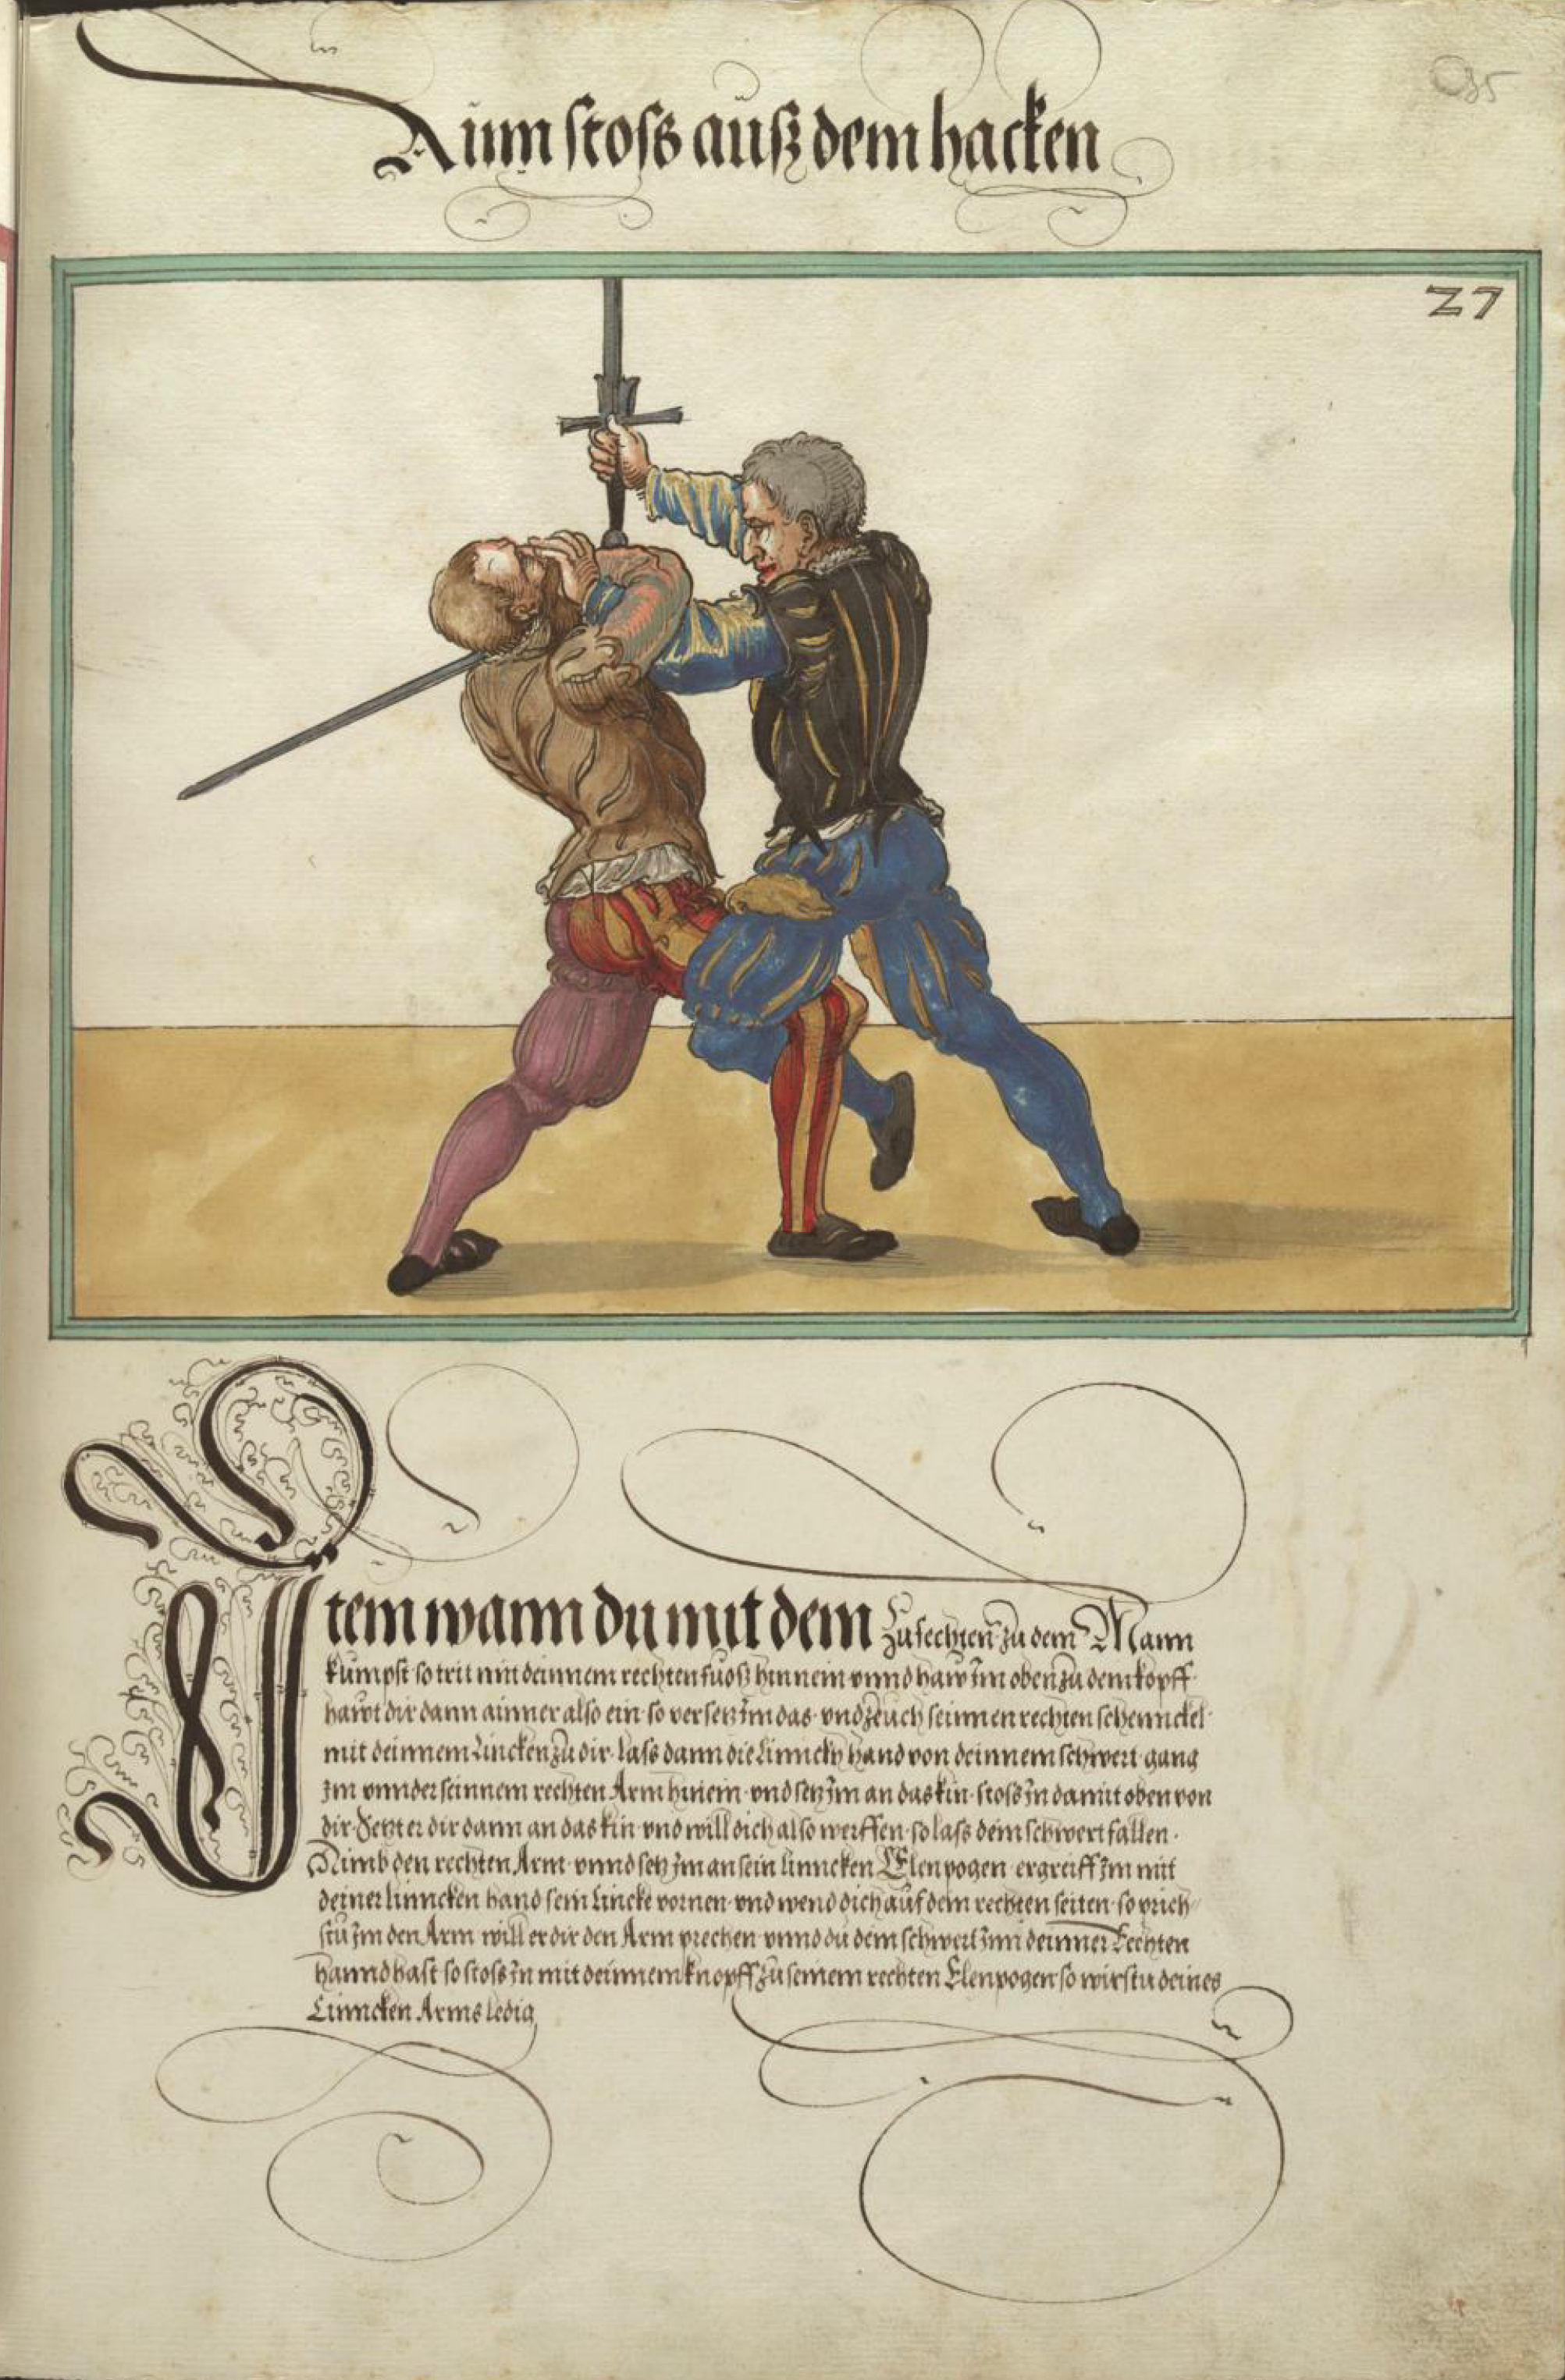 95
Ain stoss auß dem hacken
27
Item wann du mit dem Zufechten zu dem Mann
kumpst so trit mit deinnem rechten fuoß hinnein vnnd haw Im oben zu dem kopff
hawt dir dann ainner also ein so versetz Im das vnd zeuch seinnen rechten schennckel
mit deinnem Lincken zu dir lass dann die Linnckh hand von deinnem schwert gang
Im vnnder seinnem rechten Arm hinein vnd setz Im an das kin stoss In damit oben von
dir Setzt er dir dann an das kin vnd will dich also werffen so lass dein schwert fallen
Nimb den rechten Arm vnnd setz Im an sein linncken Elenpogen ergreiff Im mit
deiner linncken hand sein Lincke vornen vnd wend dich auf dein rechten seiten so prich
stu Im den Arm will er dir den Arm prechen vnnd du dein schwert Inn deinner Rechten
hannd hast so stoss In mit deinnem knopff zu seinem rechten Elenpogen so wirstu deines
Linncken Arms ledig